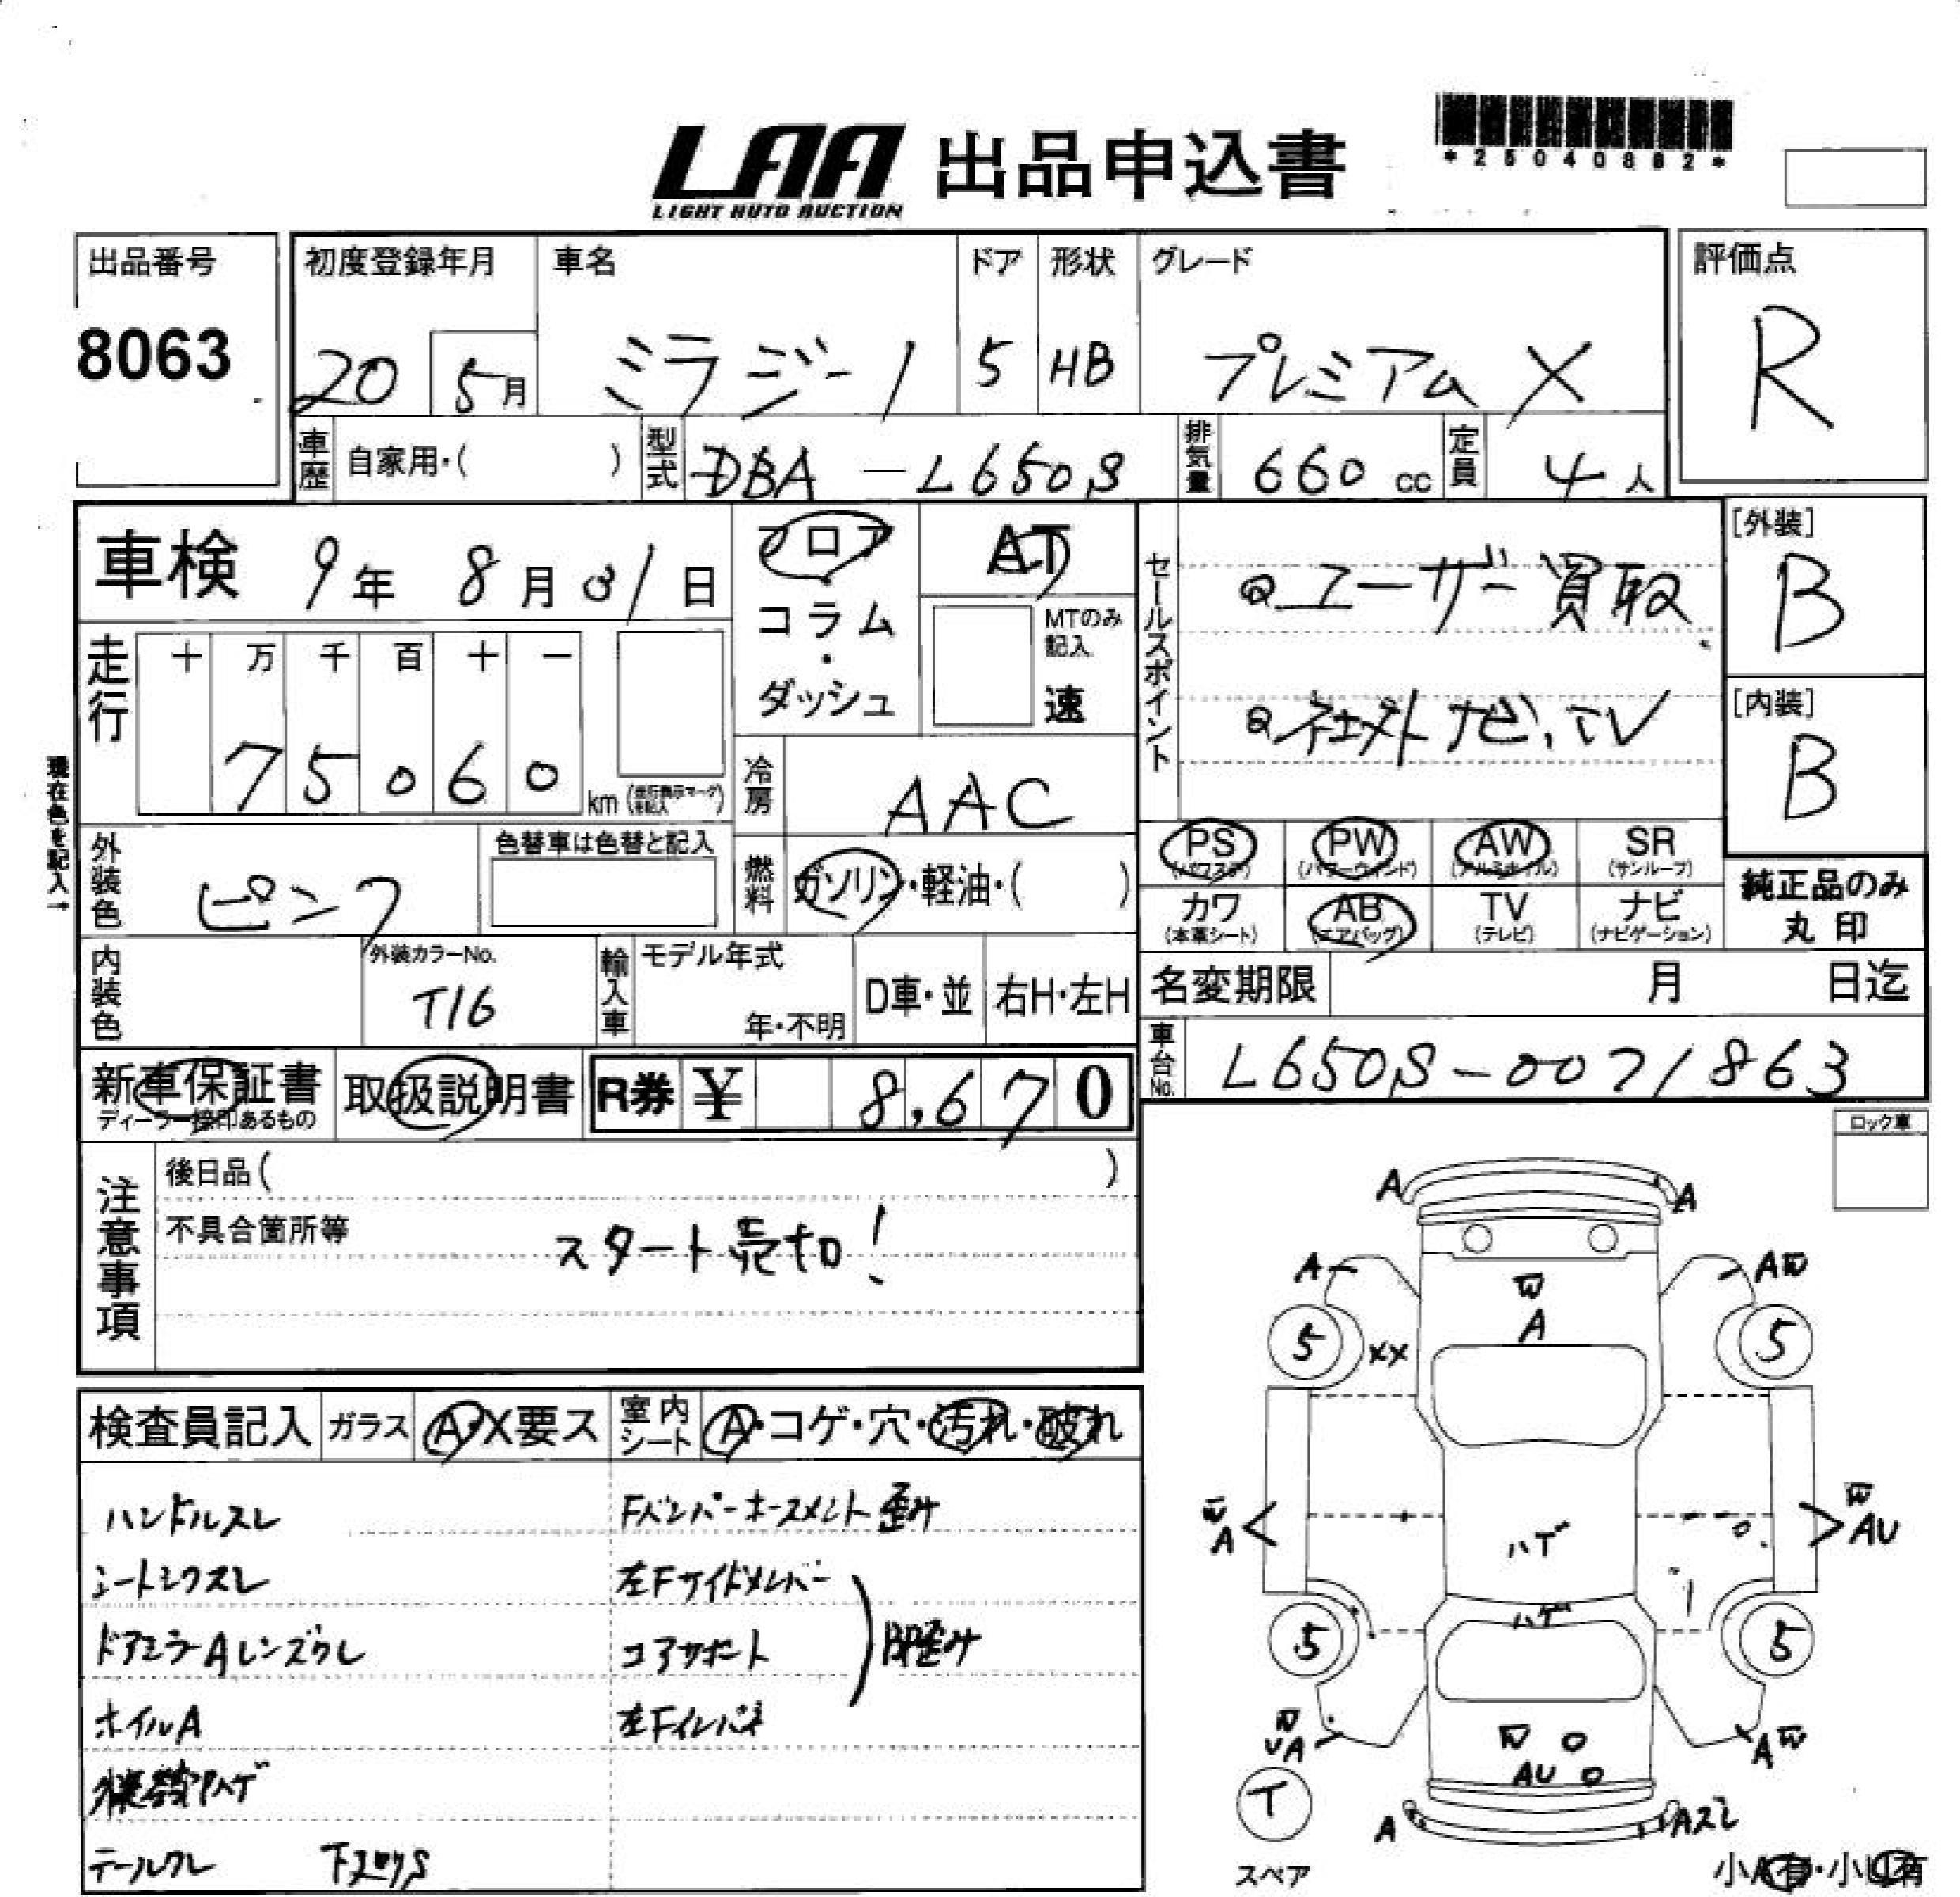 LAA 出品申込書
LIGHT AUTO AUCTION
*25040882*
出品番号 初度登録年月 車名 ドア 形状 グレード 評価点
8063 20 5月 ミラジーノ 5 HB プレミアムX R
車歴 自家用・( ) 型式 DBA-L650S 排気量 660 cc 定員 4人
車検 9年 8月 31日
フロア・コラム・ダッシュ
AT
MTのみ記入 速
セールスポイント
◎ユーザー買取
◎社外ナビ、TV
[外装] B
[内装] B
走行 十 万 千 百 十 一
75060 km
現在色を記入→
冷房 AAC
外装色 ピンク 色替車は色替と記入
燃料 ガソリン・軽油・( )
PS (パワステ) PW (パワーウィンド) AW (アルミホイル) SR (サンルーフ)
カワ (本革シート) AB (エアバッグ) TV (テレビ) ナビ (ナビゲーション)
純正品のみ丸印
内装色 外装カラーNo. T16
輸入車 モデル年式 年・不明 D車・並 右H・左H
名変期限 月 日迄
車台No. L650S-0071863
新車保証書 ディーラー捺印あるもの 取扱説明書 R券 ¥ 8,670
注意事項
後日品( )
不具合箇所等 スタート売切!
ロック車
検査員記入 ガラス A・X要ス 室内シート A・コゲ・穴・汚れ・破れ
ハンドルスレ Fバンパーホースメント歪み
シートシワスレ 左Fサイドメンバー
ドアミラーAレンズワレ コアサポート
ホイルA 左Fインパネ
テールワレ 下廻りS
A A
A AW
W
A
5 XX 5
W
A
W
AU
ハゲ
ハゲ
5 5
W
UA
W
AU
AW
T
スペア
A Aズレ
小A有・小U有